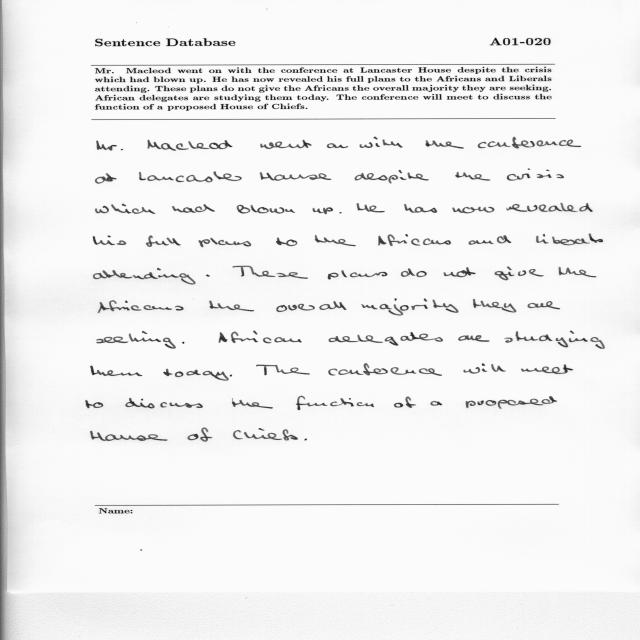 Sentence Database A01-020
Mr. Macleod went on with the conference at Lancaster House despite the crisis
which had blown up. He has now revealed his full plans to the Africans and Liberals
attending. These plans do not give the Africans the overall majority they are seeking.
African delegates are studying them today. The conference will meet to discuss the
function of a proposed House of Chiefs.
Mr. Macleod went on with the conference
at Lancaster House despite the crisis
which had blown up. He has now revealed
his full plans to the Africans and Liberals
attending. These plans do not give the
Africans the overall majority they are
seeking. African delegates are studying
them today. The conference will meet
to discuss the function of a proposed
House of Chiefs.
Name: